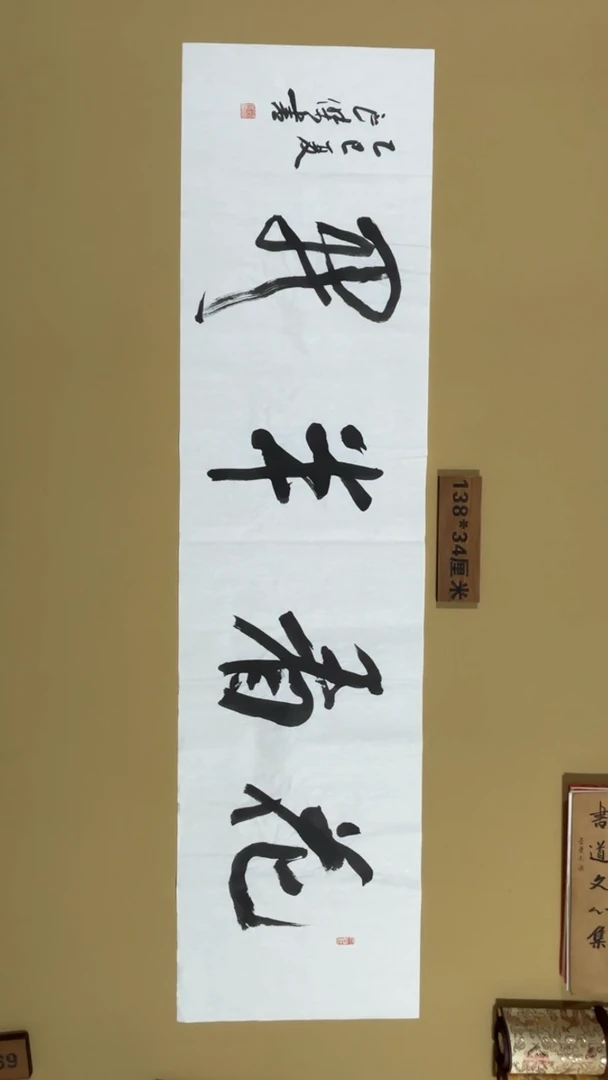 花看半開
乙巳夏
書
138*34厘米
書道文心集
69